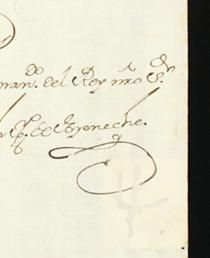 man.do del Rey nro S.r
de Goyeneche.